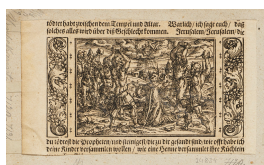 tödtet habt zwischen dem Tempel und Altar. Warlich / ich sage euch / daß
solches alles wird über diß Geschlecht kommen. Jerusalem / Jerusalem / die
du tödtest die Propheten / und steinigest / die zu dir gesandt sind / wie offt habe ich
deine Kinder versammlen wollen / wie eine Henne versammlet ihre Küchlein